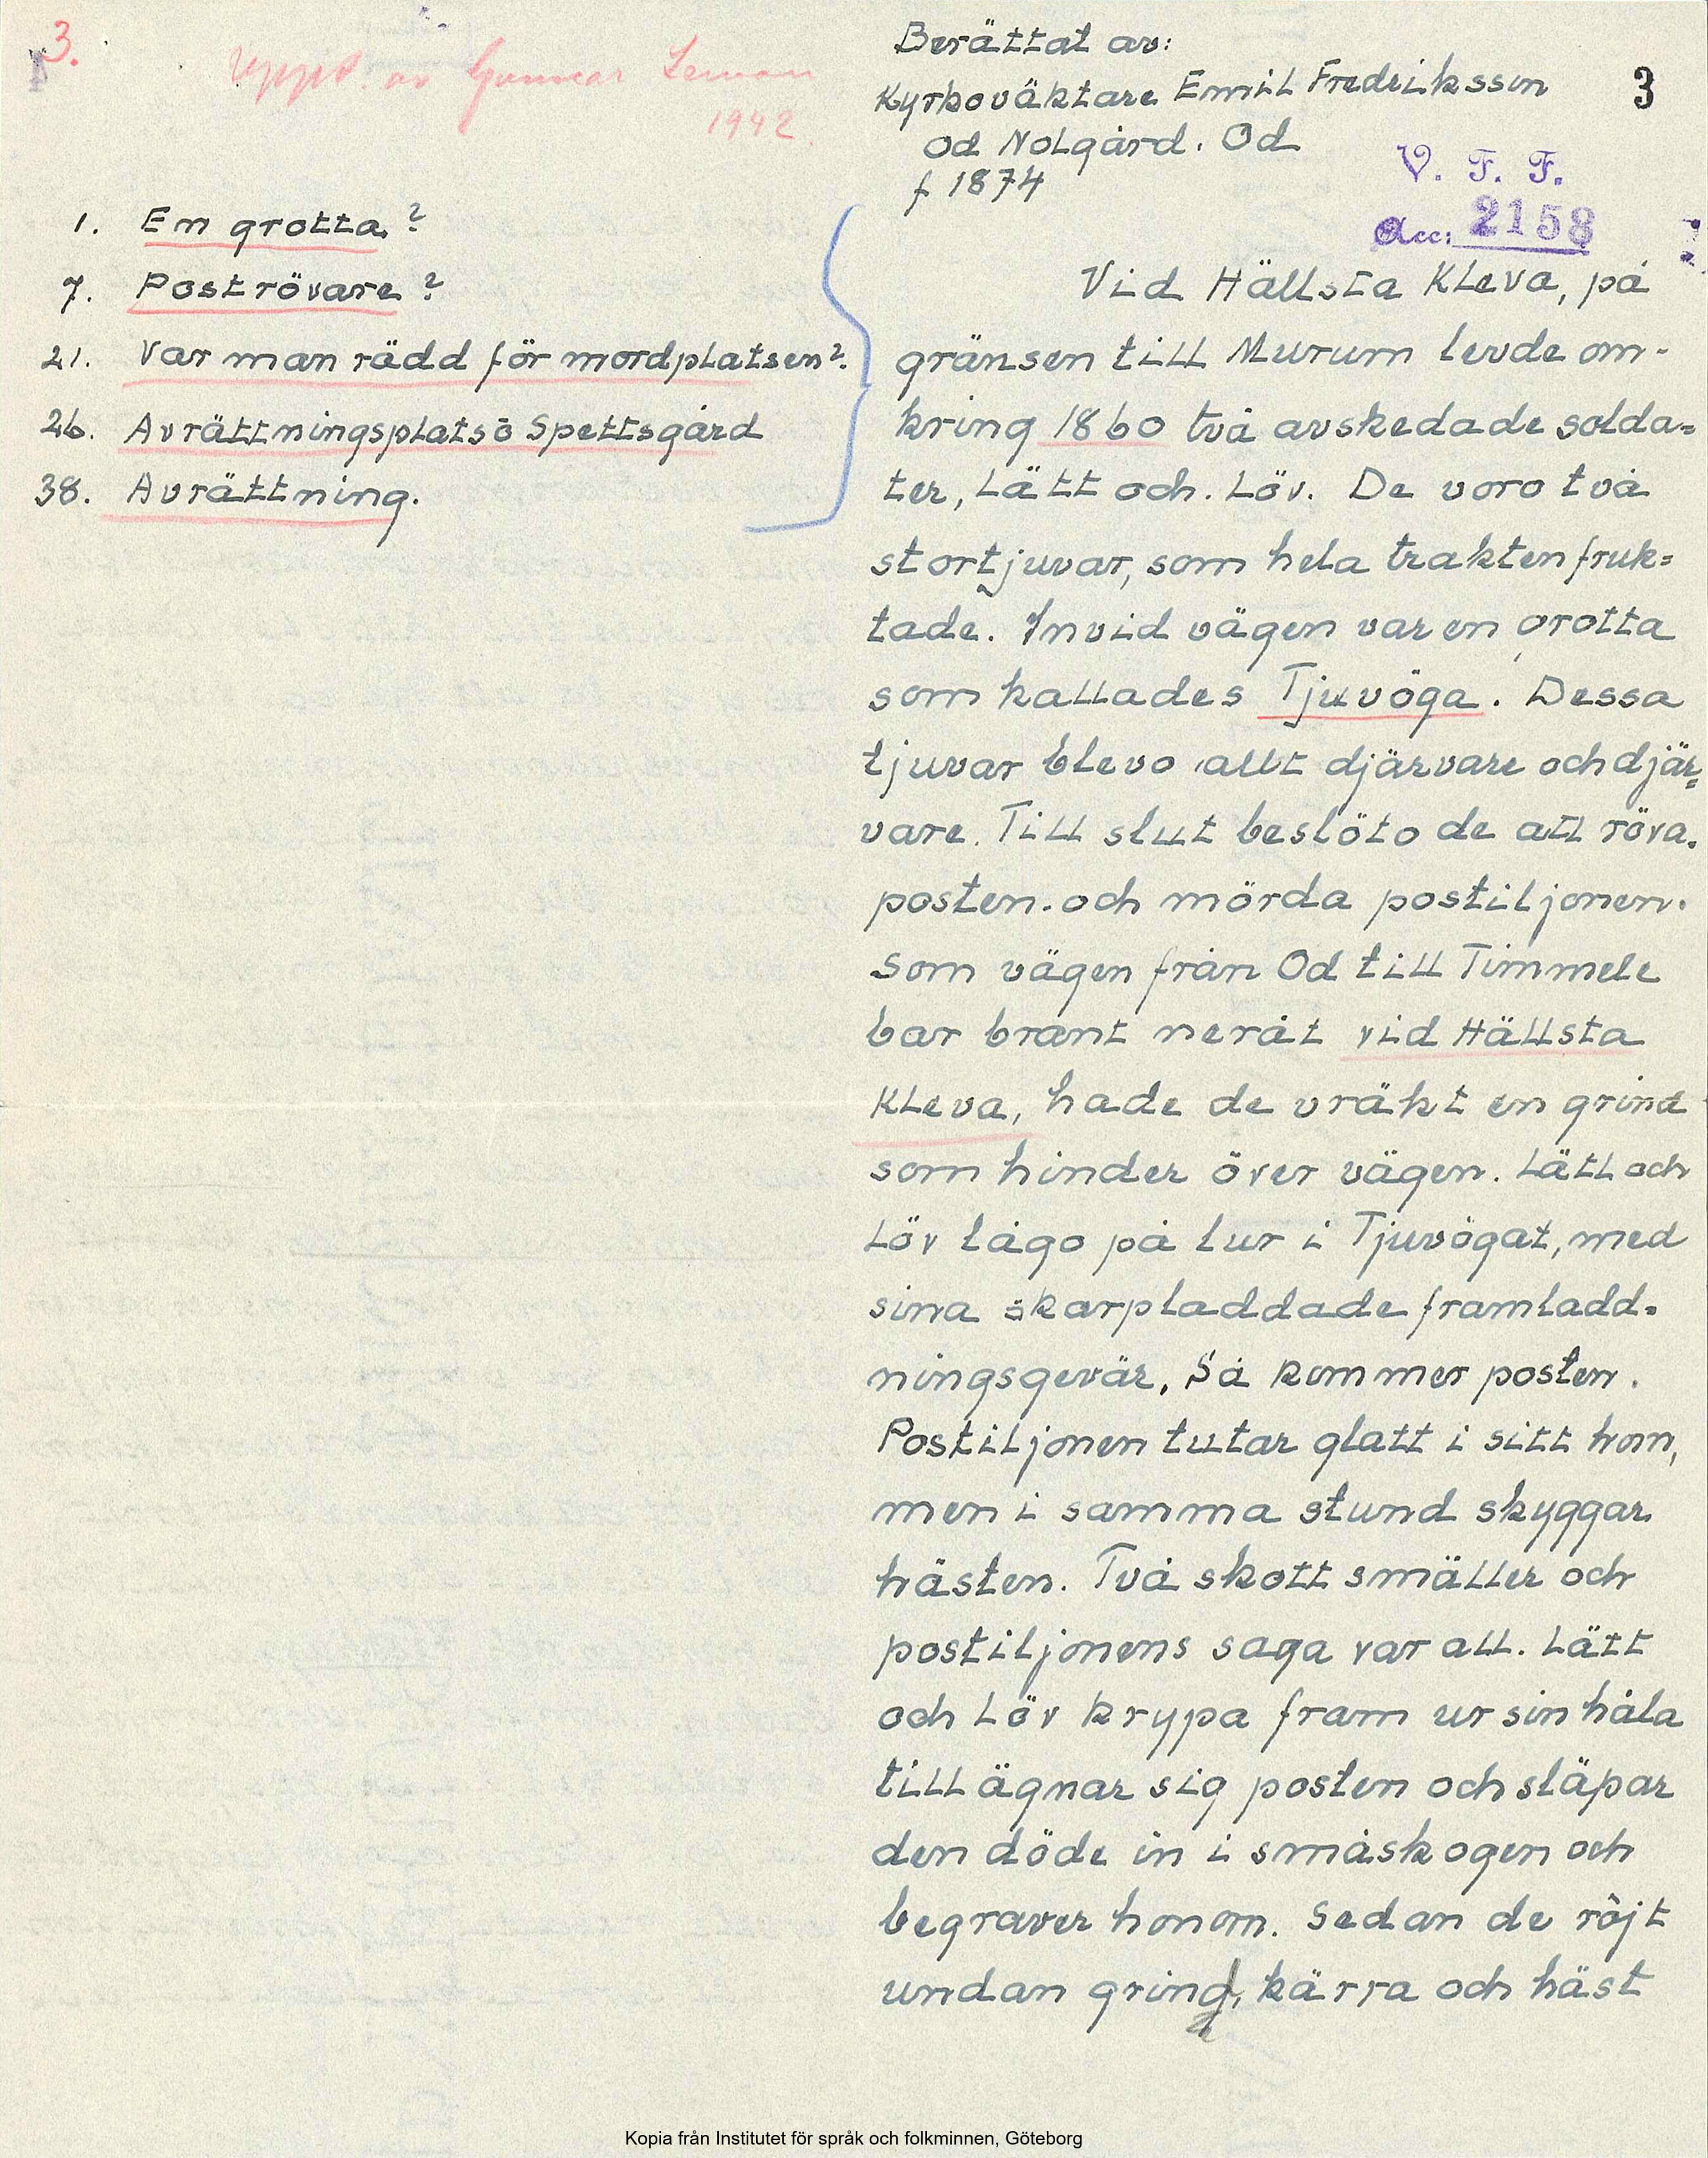 3.
Uppt. av Gunnar
1942
Berättat av:
Kyrkoväktare Emil Fredriksson
Od Nolgård. Od
f 1874
3
V. F. F.
Acc: 2158
1. En grotta?
7. Poströvare?
21. Var man rädd för mordplatsen?
26. Avrättningsplats å Spettsgård
38. Avrättning.
Vid Hällsta Kleva, på
gränsen till Murum levde om-
kring 1860 två avskedade solda=
ter, Lätt och. Löv. De voro två
stortjuvar, som hela trakten fruk=
tade. Invid vägen var en grotta
som kallades Tjuvöga. Dessa
tjuvar blevo allt djärvare och djär=
vare. Till slut beslöto de att röva.
posten. och mörda postiljonen.
Som vägen från Od till Timmele
bar brant neråt vid Hällsta
Kleva, hade de vräkt en grind
som hinder över vägen. Lätt och
Löv lågo på lur i Tjuvögat, med
sina skarpladdade framladd-
ningsgevär. Så kommer posten.
Postiljonen tutar glatt i sitt horn,
men i samma stund skyggar
hästen. Två skott smäller och
postiljonens saga var all. Lätt
och Löv krypa fram ur sin håla
tillägnar sig posten och släpar
den döde in i småskogen och
begraver honom. Sedan de röjt
undan grind, kärra och häst
Kopia från Institutet för språk och folkminnen, Göteborg